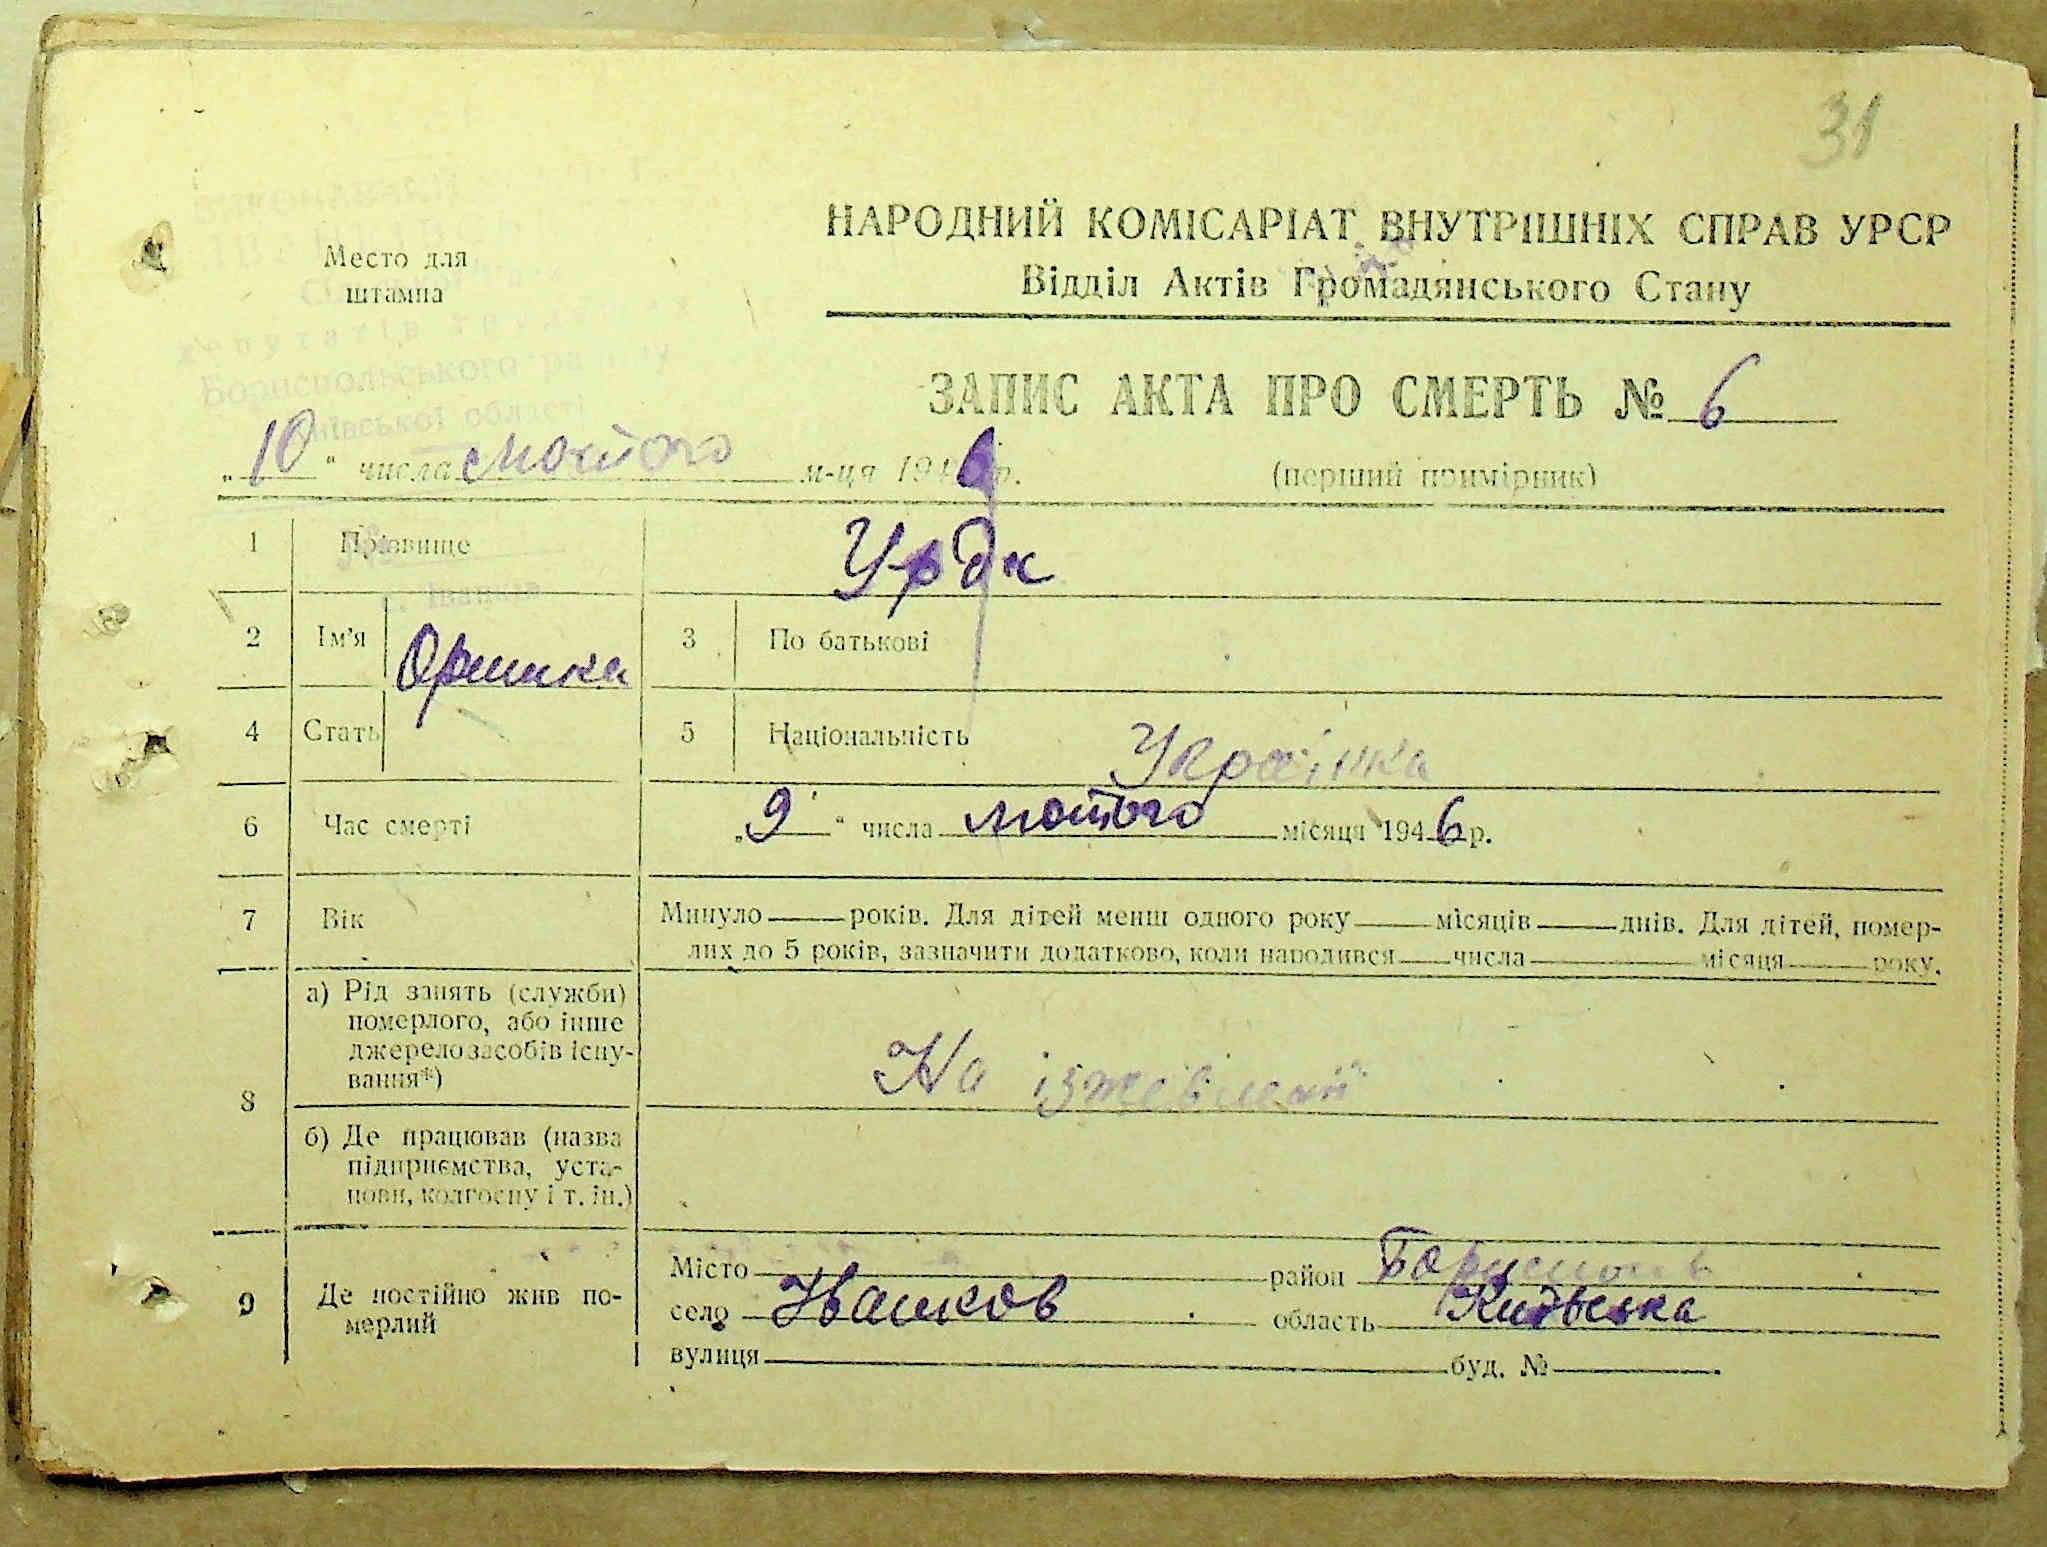 31
НАРОДНИЙ КОМІСАРІАТ ВНУТРІШНІХ СПРАВ УРСР
Відділ Актів Громадянського Стану
Место для
штампа
депутатів трудящих
Бориспольського району
Київської області
ЗАПИС АКТА ПРО СМЕРТЬ № 6
„10“ числа лютого м-ця 1946 р.
(перший примірник)
1 Прізвище Урдк
с. Іванків
2 Ім’я Оришка 3 По батькові
4 Стать 5 Національність Українка
6 Час смерті „9“ числа лютого місяця 1946 р.
7 Вік Минуло років. Для дітей менш одного року місяців днів. Для дітей, помер-
лих до 5 років, зазначити додатково, коли народився числа місяця року.
8 а) Рід занять (служби)
померлого, або інше
джерело засобів існу-
вання*)
На іжевлені
б) Де працював (назва
підприємства, уста-
нови, колгоспу і т. ін.)
9 Де постійно жив по-
мерлий
Місто район Бориспонь
село Іванков область Київська
вулиця буд. №